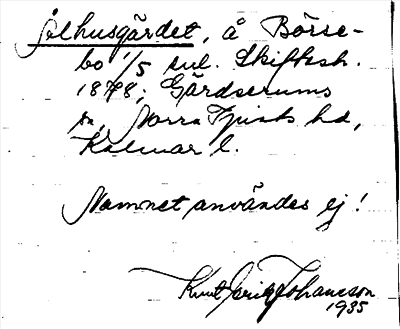 jolhusgärdet, å Börse-
bo 1/5 enl. Skiftesh.
1878; Gärdserums
sn, Norra Tjusts hd,
Kalmar l.
Namnet användes ej!
Knut Johansson
1935